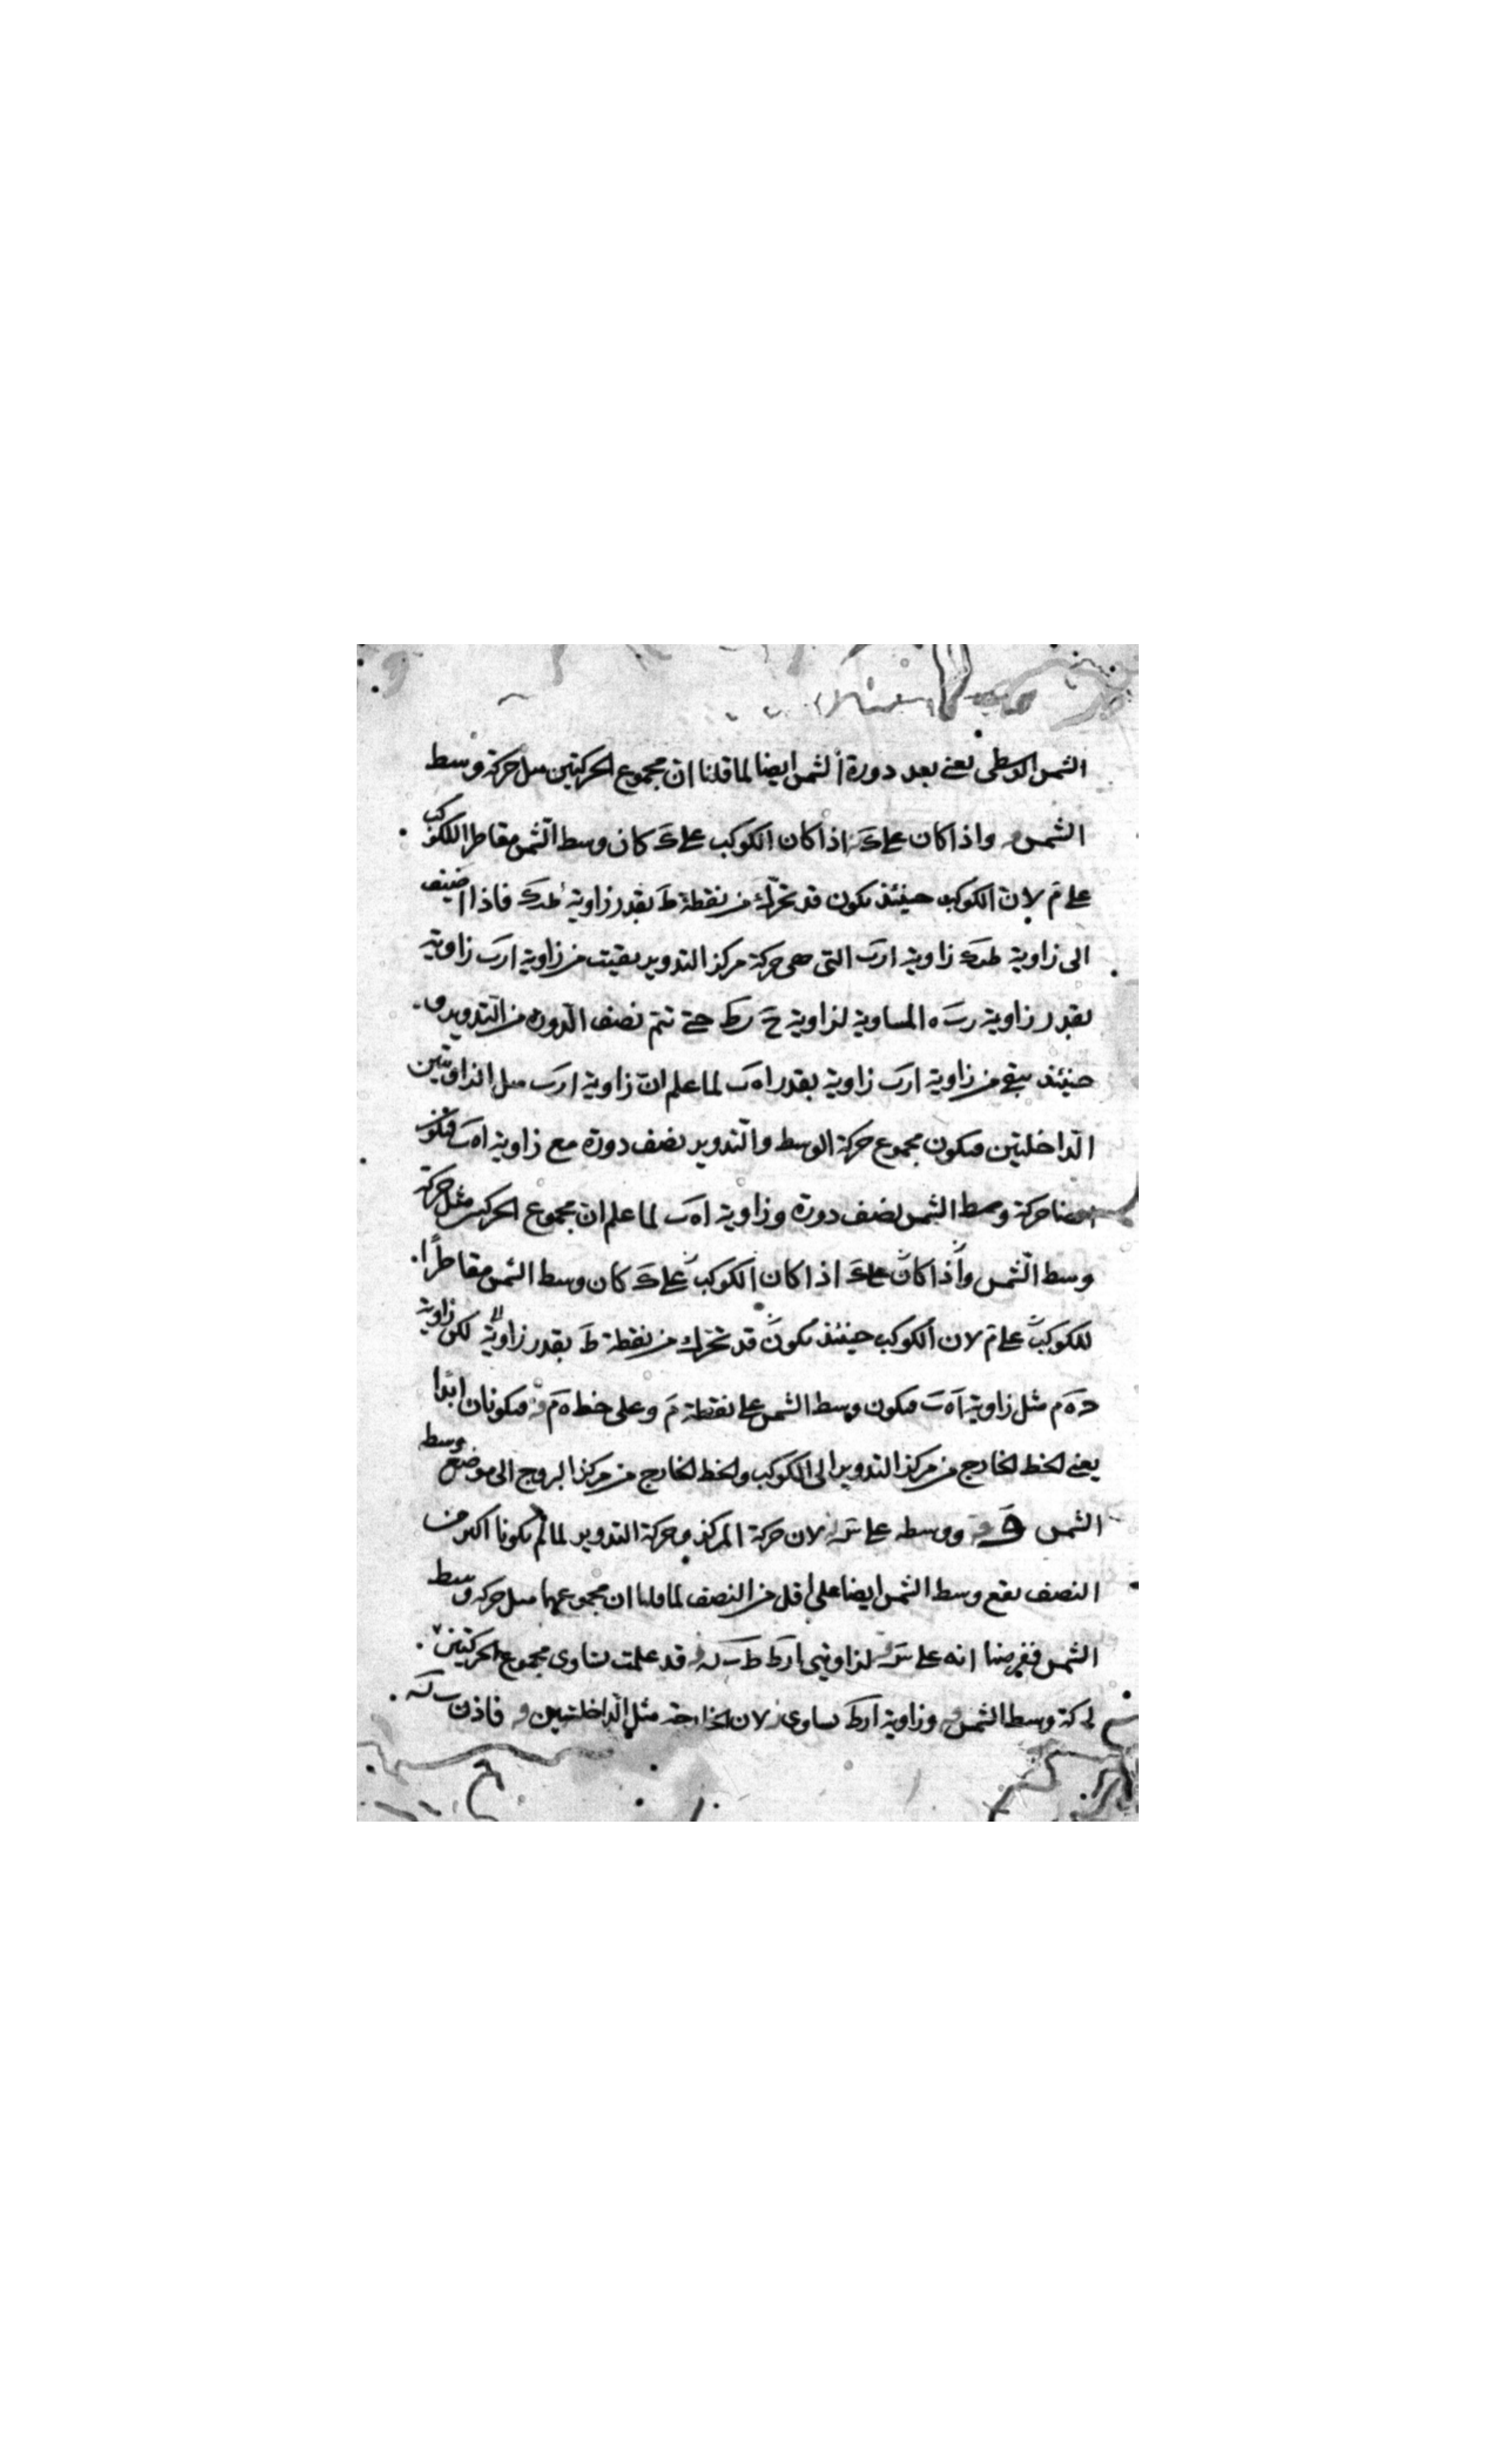 الشمس الوسطى يعني بعد دورة الشمس ايضا لما قلنا ان مجموع الحركتين مثل حركة وسط
الشمس واذا كان على ك اذا كان الكوكب على ك كان وسط الشمس مقاطر اللكوكب
على م لان الكوكب حينئذ يكون قد تحرك من نقطة ط بقدر زاوية فاذا اضيف
الى زاوية زاوية ارب التي هى حركة مركز التدوير بقيت من زاوية ارب زاوية
بقدر زاوية رب ه المساوية لزاوية ح رط حتى تتم نصف الدورة من التدوير و
حينئذ يبقى من زاوية ارب زاوية بقدر اه ب لما علم ان زاوية ارب مثل الزاويتين
الداخلتين فيكون مجموع حركة الوسط والتدوير نصف دورة مع زاوية اه ب فيكون
ايضا حركة وسط الشمس نصف دورة وزاوية اه ب لما علم ان مجموع الحركتين مثل حركة
وسط الشمس واذا كان على ك اذا كان الكوكب على ك كان وسط الشمس مقاطرا
للكوكب على م لان الكوكب حينئذ يكون قد تحرك من نقطة ط بقدر زاوية لكن زاوية
ح ه م مثل زاوية اه ب فيكون وسط الشمس على نقطة م وعلى خط ه م فيكونان ابدا
يعني الخط الخارج من مركز التدوير الى الكوكب والخط الخارج من مركز البروج الى موضع وسط
الشمس ووسطه على لان حركة المركز وحركة التدوير لما لم يكونا اكثر من
النصف يقع وسط الشمس ايضا على اقل من النصف لما قلنا ان مجموعهما مثل حركة وسط
الشمس ففرضنا انه على لزاويتى ارط ط ب ك قد علمت تساوى مجموع الحركتين
لحركة وسط الشمس وزاوية ارط تساوى لان الخارجة مثل الداخلتين فاذن